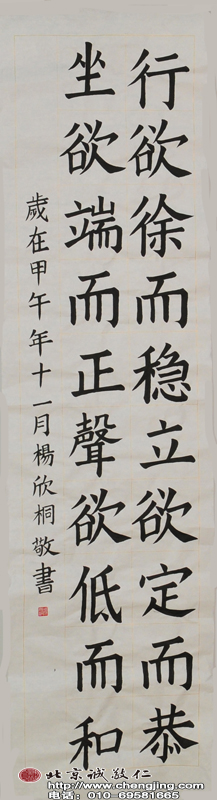 行欲徐而稳立欲定而恭
坐欲端而正聲欲低而和
歲在甲午年十一月楊欣桐敬書
北京诚敬仁
http://www.chengjing.com
电话：010-69581665